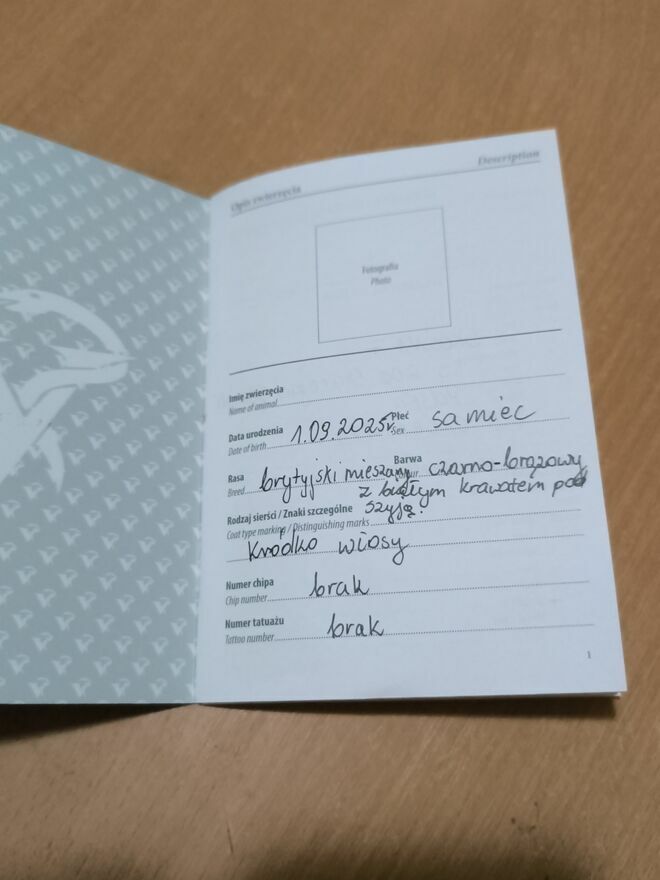 Opis zwierzęcia Description
Fotografia
Photo
Imię zwierzęcia
Name of animal
Data urodzenia 1.09.2025r. Płeć samiec
Date of birth Sex
Rasa brytyjski mieszany Barwa czarno-brązowy
Breed Colour z białym krawatem pod
Rodzaj sierści / Znaki szczególne szyją.
Coat type marking / Distinguishing marks
Krodko wiosy
Numer chipa brak
Chip number
Numer tatuażu brak
Tattoo number
1